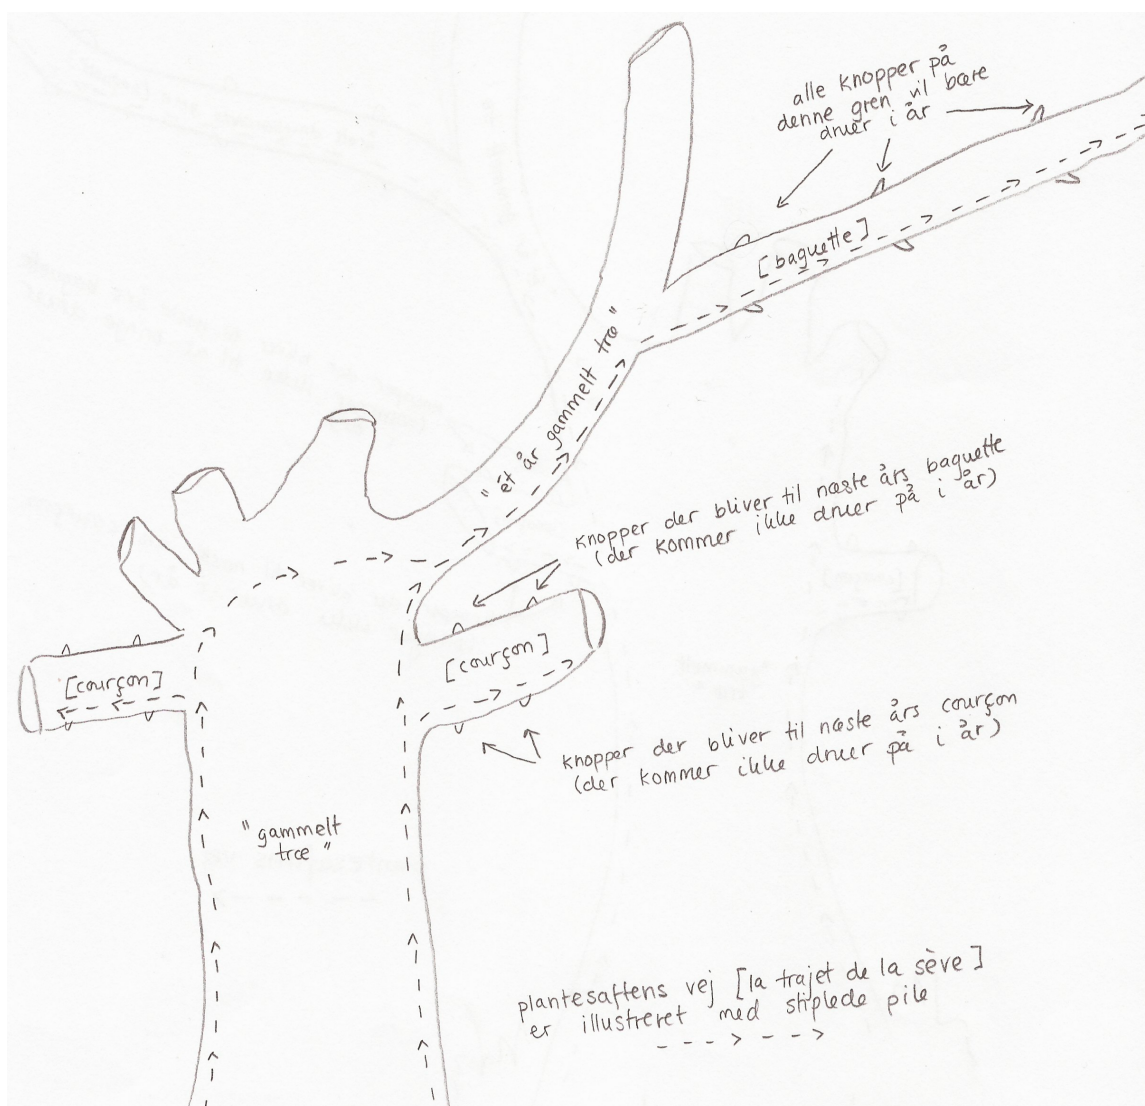 alle knopper på
denne gren vil bære
druer i år
[baguette]
"ét år gammelt træ"
knopper der bliver til næste års baguette
(der kommer ikke druer på i år)
[courçon]
[courçon]
knopper der bliver til næste års courçon
(der kommer ikke druer på i år)
"gammelt
træ"
plantesaftens vej [la trajet de la sève]
er illustreret med stiplede pile